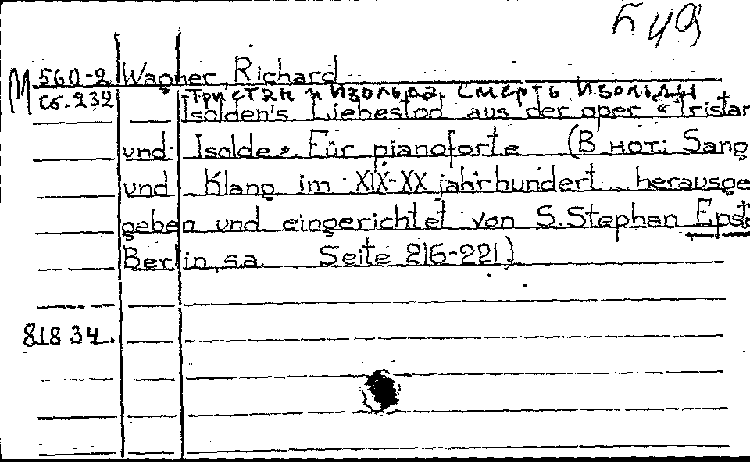 М 560-2 Wagner Richard
Сб. 232 Тристан и Изольда. Смерть Изольды
Isolden's Liebestod aus der oper "Tristan
und Isolde". Für pianoforte (В нот: Sang
und Klang im XIX-XX jahrhundert herausge
geben und eingerichtet von S. Stephan Epst
Berlin, s.a. Seite 216-221)
81834.